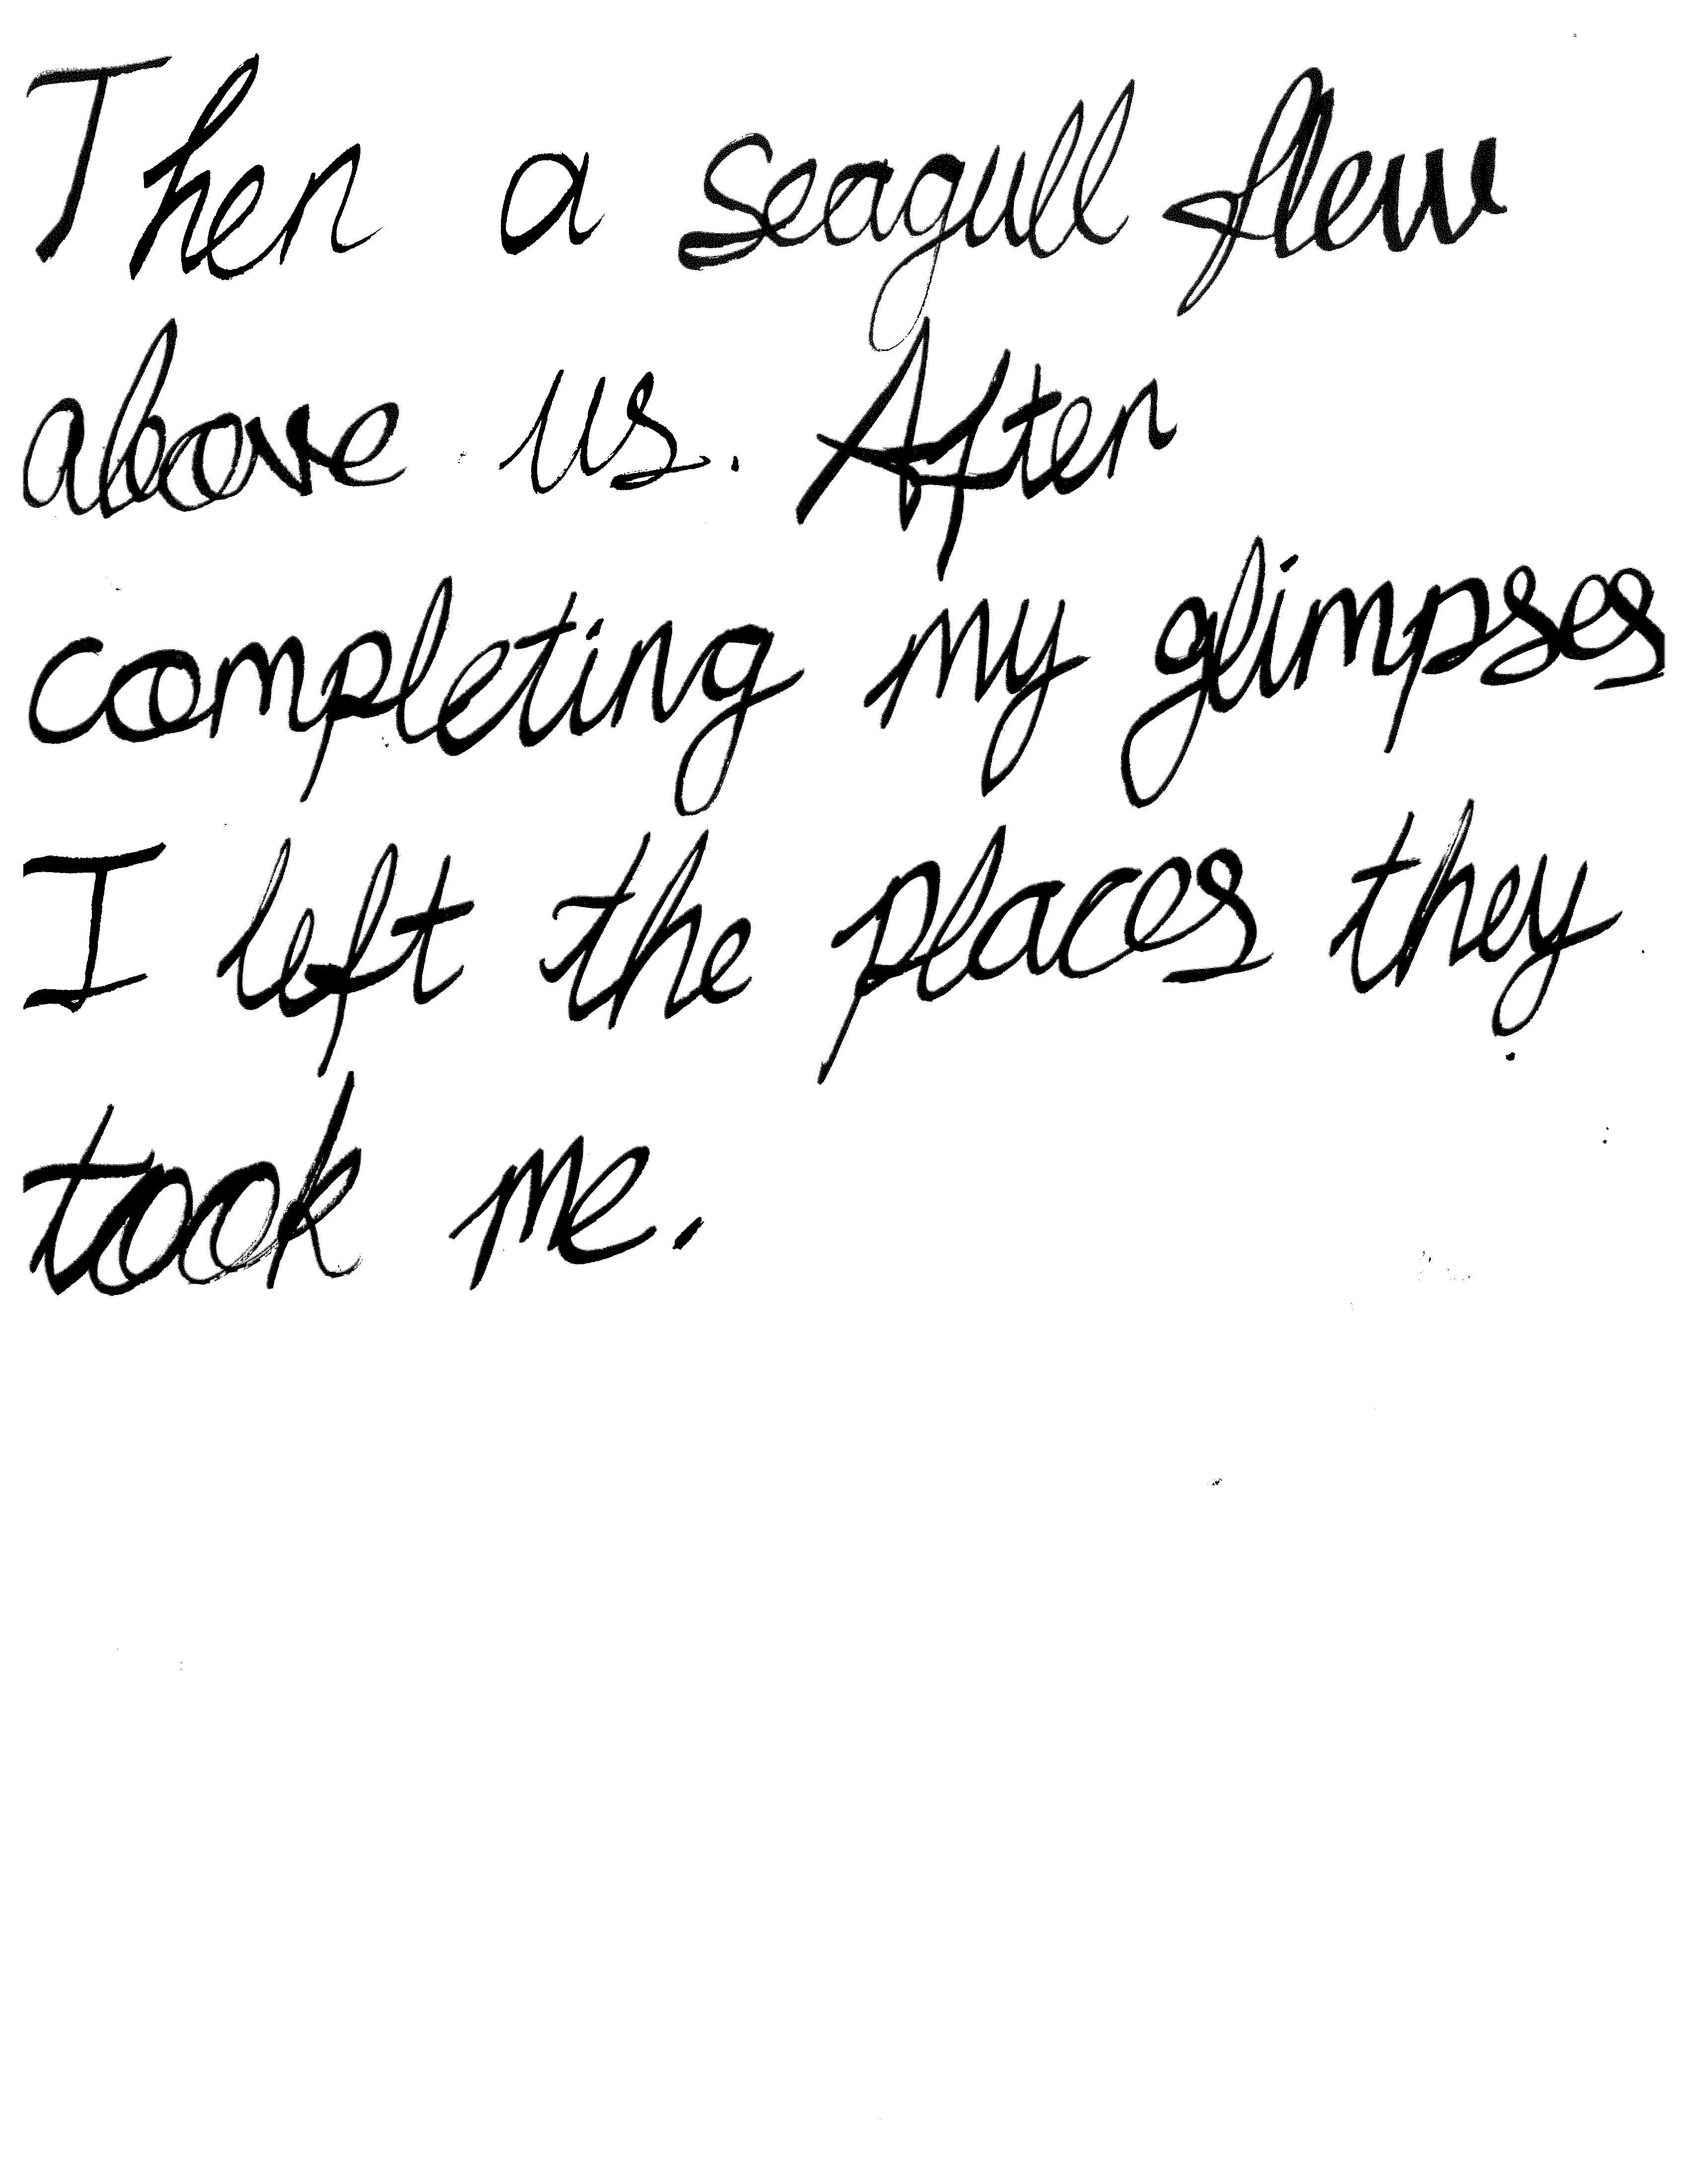 Then a seagull flew
above us. After
completing my glimpses
I left the places they
took me.